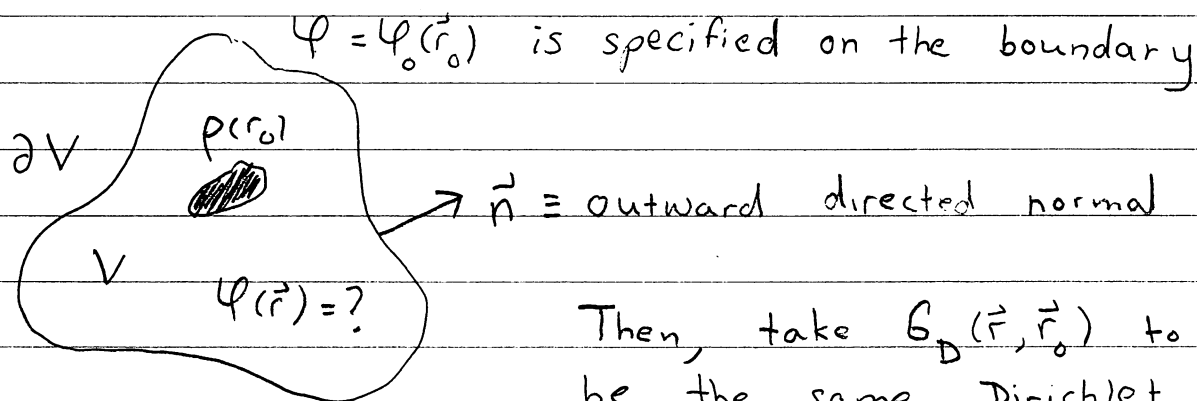 φ = φ₀(r⃗₀) is specified on the boundary
∂V
ρ(r₀)
n⃗ ≡ outward directed normal
V
φ(r⃗) = ?
Then, take G_D(r⃗, r⃗₀) to
be the same Dirichlet